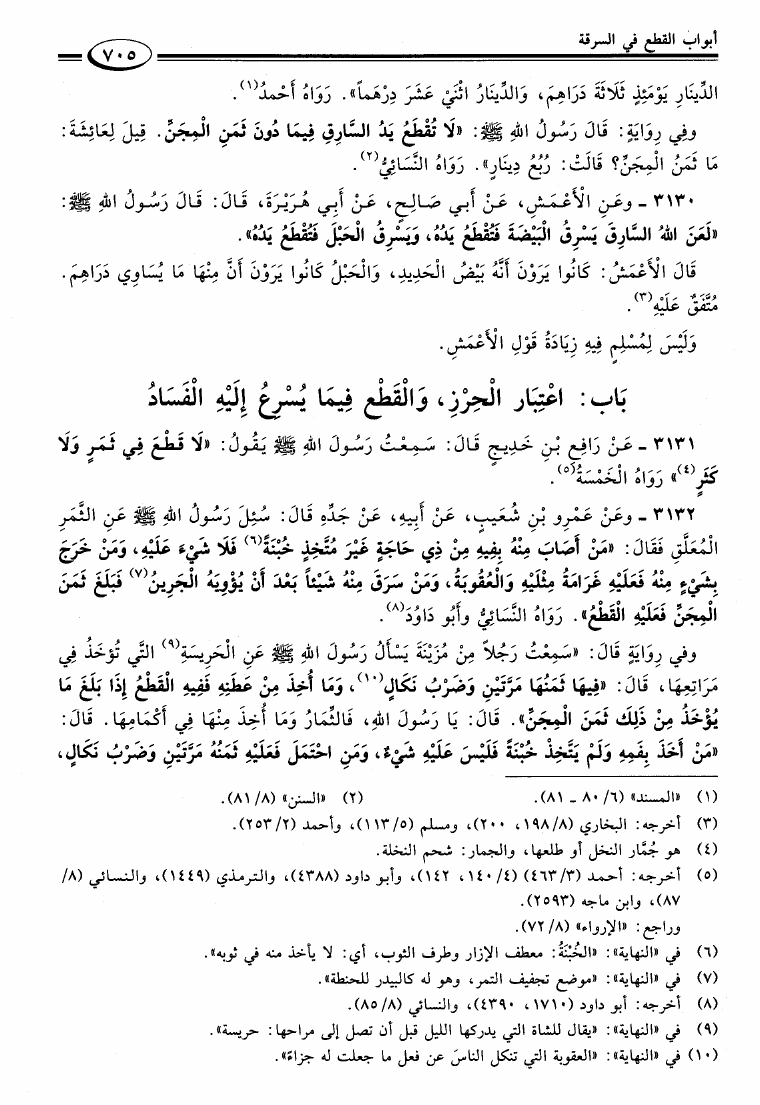 أبواب القطع في السرقة
٧٠٥
الدِّينَارِ يَوْمَئِذٍ ثَلَاثَةَ دَرَاهِمَ، وَالدِّينَارُ اثْنَيْ عَشَرَ دِرْهَماً». رَوَاهُ أَحْمَدُ(١).
وفِي رِوَايَةٍ: قَالَ رَسُولُ اللهِ ﷺ: «لَا تُقْطَعُ يَدُ السَّارِقِ فِيمَا دُونَ ثَمَنِ الْمِجَنِّ. قِيلَ لِعَائِشَةَ:
مَا ثَمَنُ الْمِجَنِّ؟ قَالَتْ: رُبُعُ دِينَارٍ». رَوَاهُ النَّسَائِيُّ(٢).
٣١٣٠ ـ وعَنِ الْأَعْمَشِ، عَنْ أَبي صَالِحٍ، عَنْ أَبِي هُرَيْرَةَ، قَالَ: قَالَ رَسُولُ اللهِ ﷺ:
«لَعَنَ اللهُ السَّارِقَ يَسْرِقُ الْبَيْضَةَ فَتُقْطَعُ يَدُهُ، وَيَسْرِقُ الْحَبْلَ فَتُقْطَعُ يَدُهُ».
قَالَ الْأَعْمَشُ: كَانُوا يَرَوْنَ أَنَّهُ بَيْضُ الْحَدِيدِ، وَالْحَبْلُ كَانُوا يَرَوْنَ أَنَّ مِنْهَا مَا يُسَاوِي دَرَاهِمَ.
مُتَّفَقٌ عَلَيْهِ(٣).
وَلَيْسَ لِمُسْلِمٍ فِيهِ زِيَادَةُ قَوْلِ الْأَعْمَشِ.
بَاب: اعْتِبَارِ الْحِرْزِ، وَالْقَطْعِ فِيمَا يُسْرِعُ إِلَيْهِ الْفَسَادُ
٣١٣١ ـ عَنْ رَافِعِ بْنِ خَدِيجٍ قَالَ: سَمِعْتُ رَسُولَ اللهِ ﷺ يَقُولُ: «لَا قَطْعَ فِي ثَمَرٍ وَلَا
كَثَرٍ(٤)» رَوَاهُ الْخَمْسَةُ(٥).
٣١٣٢ ـ وعَنْ عَمْرِو بْنِ شُعَيبٍ، عَنْ أَبِيهِ، عَنْ جَدِّهِ قَالَ: سُئِلَ رَسُولُ اللهِ ﷺ عَنِ الثَّمَرِ
الْمُعَلَّقِ فَقَالَ: «مَنْ أَصَابَ مِنْهُ بِفِيهِ مِنْ ذِي حَاجَةٍ غَيْرَ مُتَّخِذٍ خُبْنَةً(٦) فَلَا شَيْءَ عَلَيْهِ، وَمَنْ خَرَجَ
بِشَيْءٍ مِنْهُ فَعَلَيْهِ غَرَامَةُ مِثْلَيْهِ وَالْعُقُوبَةُ، وَمَنْ سَرَقَ مِنْهُ شَيْئاً بَعْدَ أَنْ يُؤْوِيَهُ الْجَرِينُ(٧) فَبَلَغَ ثَمَنَ
الْمِجَنِّ فَعَلَيْهِ الْقَطْعُ». رَوَاهُ النَّسَائِيُّ وأَبُو دَاوُدَ(٨).
وفي رِوَايَةٍ قَالَ: «سَمِعْتُ رَجُلاً مِنْ مُزَيْنَةَ يَسْأَلُ رَسُولَ اللهِ ﷺ عَنِ الْحَرِيسَةِ(٩) التَّي تُؤْخَذُ فِي
مَرَاتِعِهَا، قَالَ: «فِيهَا ثَمَنُهَا مَرَّتَيْنِ وَضَرْبُ نَكَالٍ(١٠)، وَمَا أُخِذَ مِنْ عَطَنِهِ فَفِيهِ الْقَطْعُ إِذَا بَلَغَ مَا
يُؤْخَذُ مِنْ ذَلِكَ ثَمَنَ الْمِجَنِّ». قَالَ: يَا رَسُولَ اللهِ، فَالثِّمَارُ وَمَا أُخِذَ مِنْهَا فِي أَكْمَامِهَا. قَالَ:
«مَنْ أَخَذَ بِفَمِهِ وَلَمْ يَتَّخِذْ خُبْنَةً فَلَيْسَ عَلَيْهِ شَيْءٌ، وَمَنِ احْتَمَلَ فَعَلَيْهِ ثَمَنُهُ مَرَّتَيْنِ وَضَرْبُ نَكَالٍ،
(١) «المسند» (٦/ ٨٠ ـ ٨١). (٢) «السنن» (٨/ ٨١).
(٣) أخرجه: البخاري (٨/ ١٩٨، ٢٠٠)، ومسلم (٥/ ١١٣)، وأحمد (٢/ ٢٥٣).
(٤) هو جُمَّار النخل أو طلعها، والجمار: شحم النخلة.
(٥) أخرجه: أحمد (٣/ ٤٦٣) (٤/ ١٤٠، ١٤٢)، وأبو داود (٤٣٨٨)، والترمذي (١٤٤٩)، والنسائي (٨/
٨٧)، وابن ماجه (٢٥٩٣).
وراجع: «الإرواء» (٨/ ٧٢).
(٦) في «النهاية»: «الخُبْنَةُ: معطف الإزار وطرف الثوب، أي: لا يأخذ منه في ثوبه».
(٧) في «النهاية»: «موضع تجفيف التمر، وهو له كالبيدر للحنطة».
(٨) أخرجه: أبو داود (١٧١٠، ٤٣٩٠)، والنسائي (٨/ ٨٥).
(٩) في «النهاية»: «يقال للشاة التي يدركها الليل قبل أن تصل إلى مراحها: حريسة».
(١٠) في «النهاية»: «العقوبة التي تنكل الناسَ عن فعل ما جعلت له جزاءً».